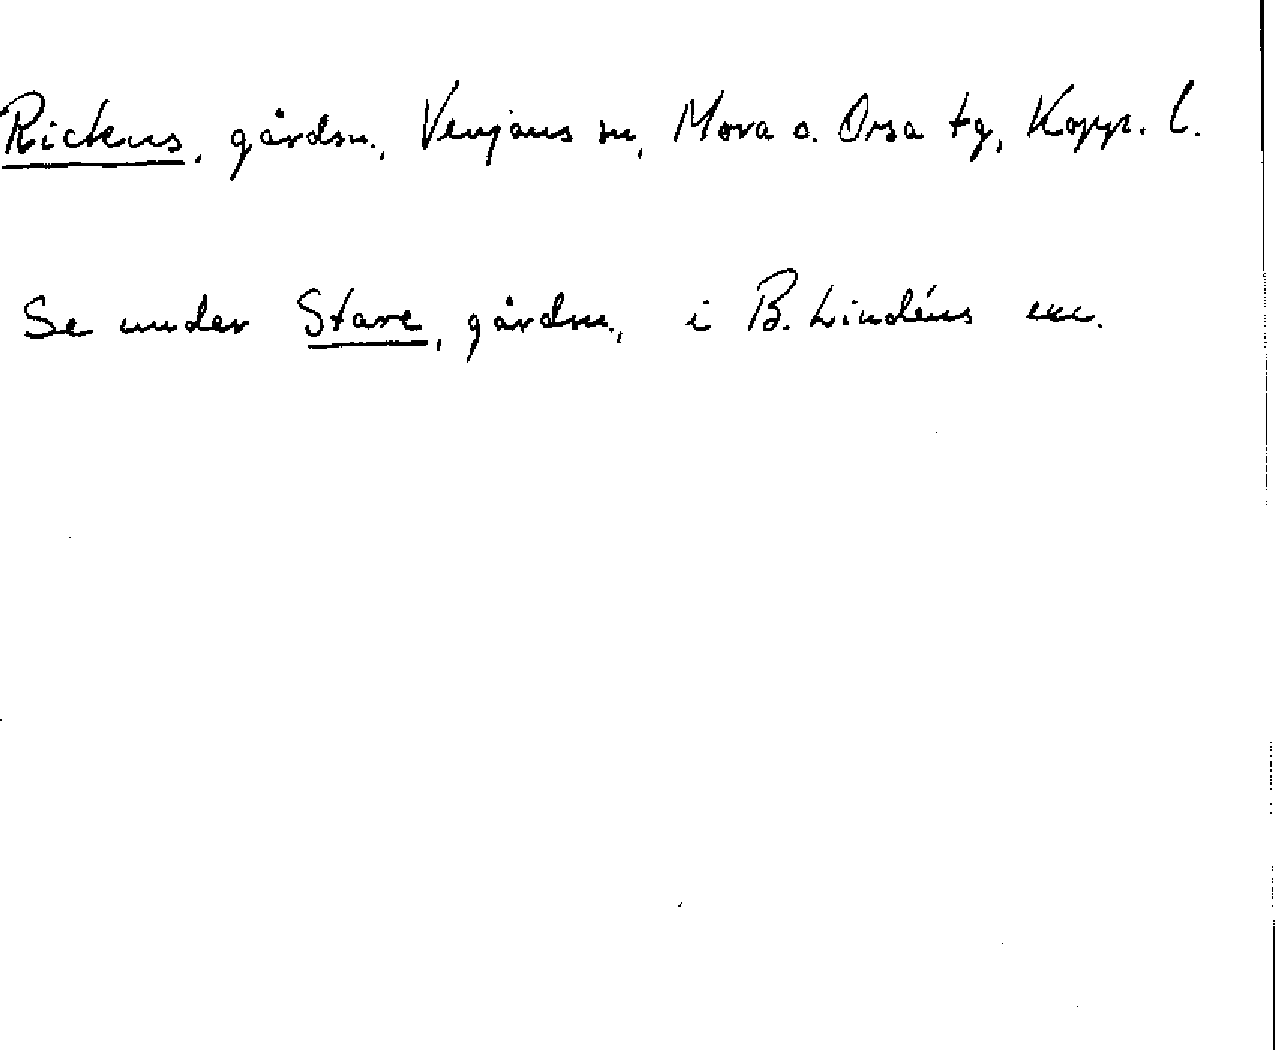 Rickus, gårdsn., Venjans sn, Mora o. Orsa tg, Kopp. l.
Se under Stare, gårdsn., i B. Lindéns exc.